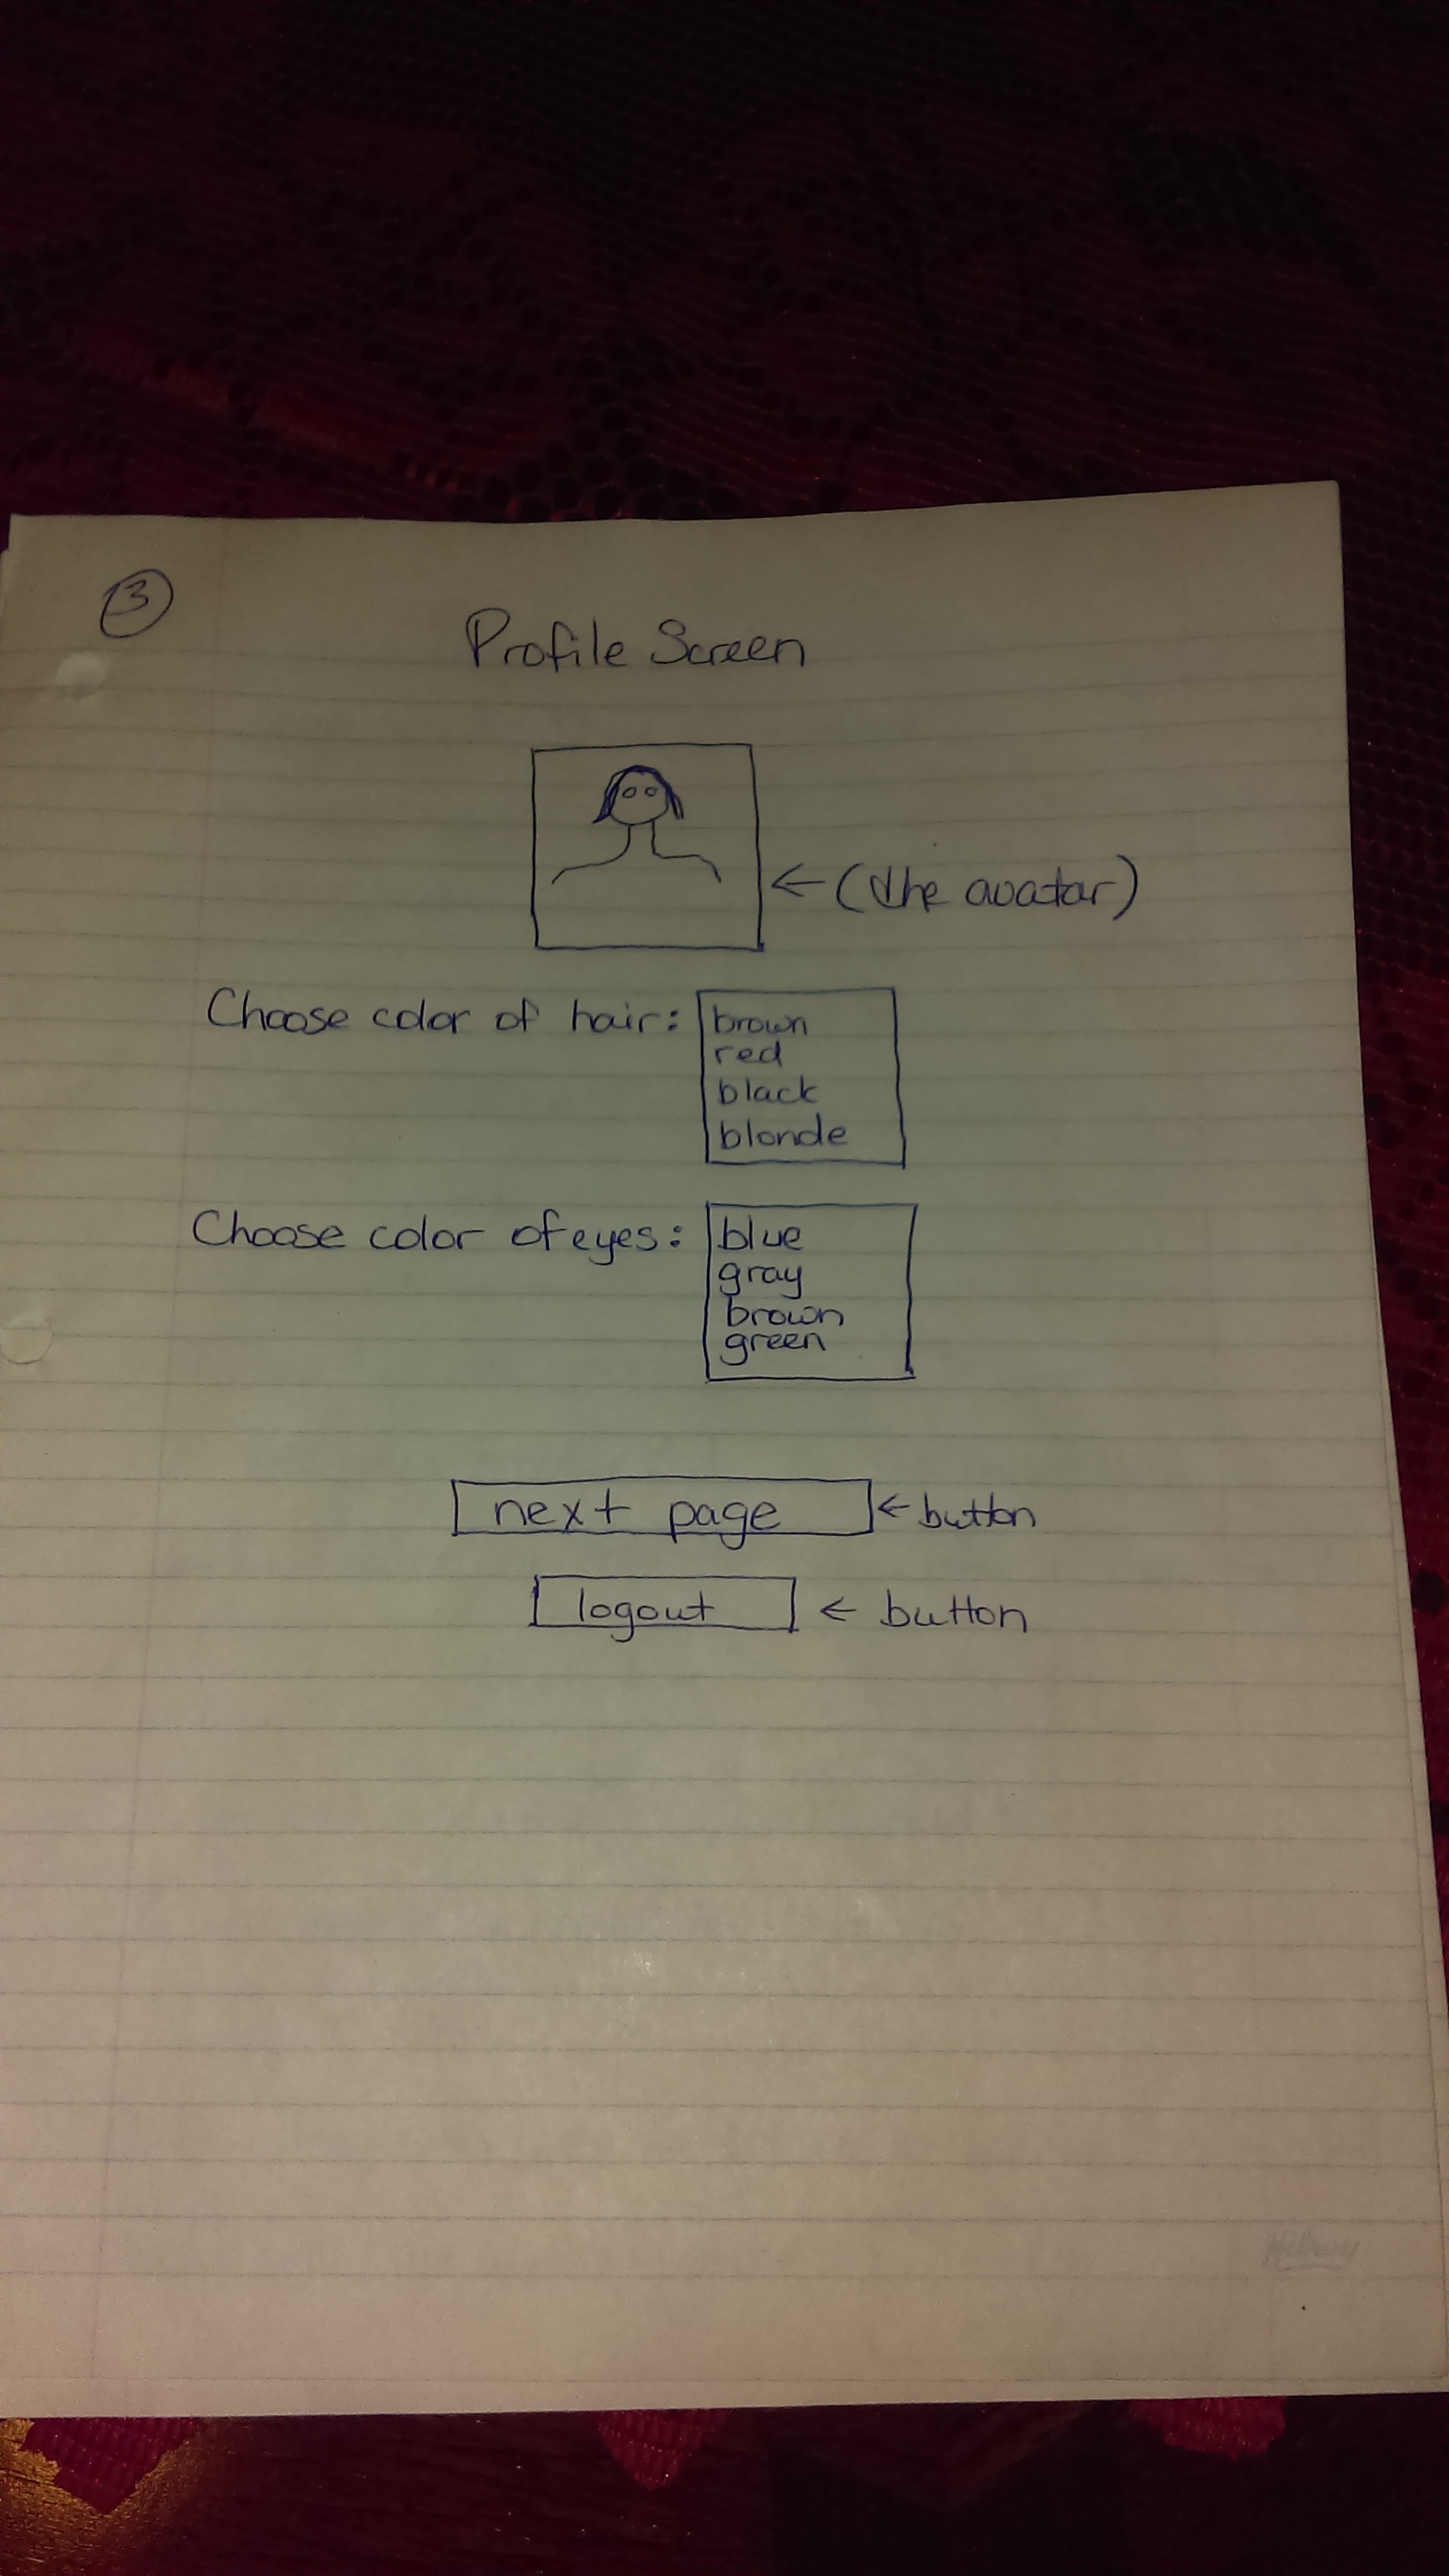 3
Profile Screen
← (the avatar)
Choose color of hair: brown
red
black
blonde
Choose color of eyes: blue
gray
brown
green
next page ← button
logout ← button
Hilroy